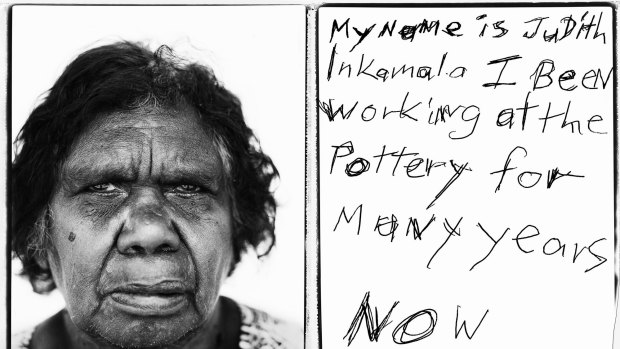 My name is Judith
Inkamala I Been
working at the
Pottery for
Many years
NOW